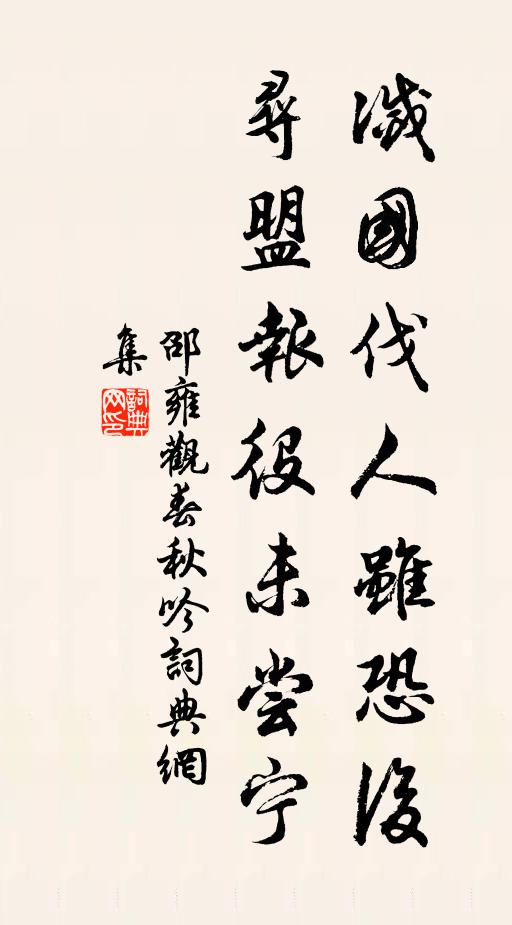 滅國伐人雖恐後
尋盟報役未尝宁
邵雍觀春秋吟詞典網
集
詞典
网印